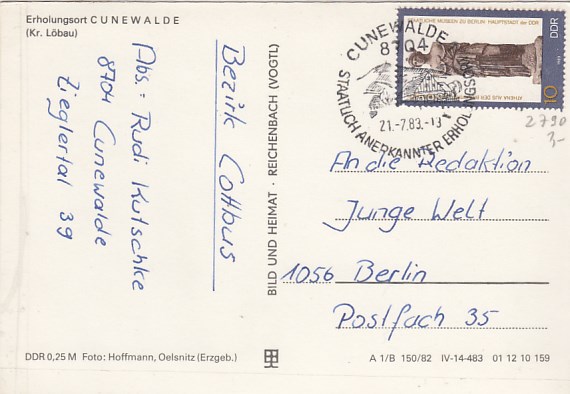 Erholungsort CUNEWALDE
(Kr. Löbau)
Abs.: Rudi Kutschke
8704 Cunewalde
Zieglertal 39
Bezirk Cottbus
BILD UND HEIMAT · REICHENBACH (VOGTL)
STAATLICHE MUSEEN ZU BERLIN HAUPTSTADT der DDR
DDR
10
ATHENA AUS DER
CUNEWALDE
8704
21.-7.83.-13
STAATLICH ANERKANNTER ERHOLUNGSORT
2790
3,-
An die Redaktion
Junge Welt
1056 Berlin
Postfach 35
DDR 0,25 M Foto: Hoffmann, Oelsnitz (Erzgeb.)
A 1/B 150/82 IV-14-483 01 12 10 159